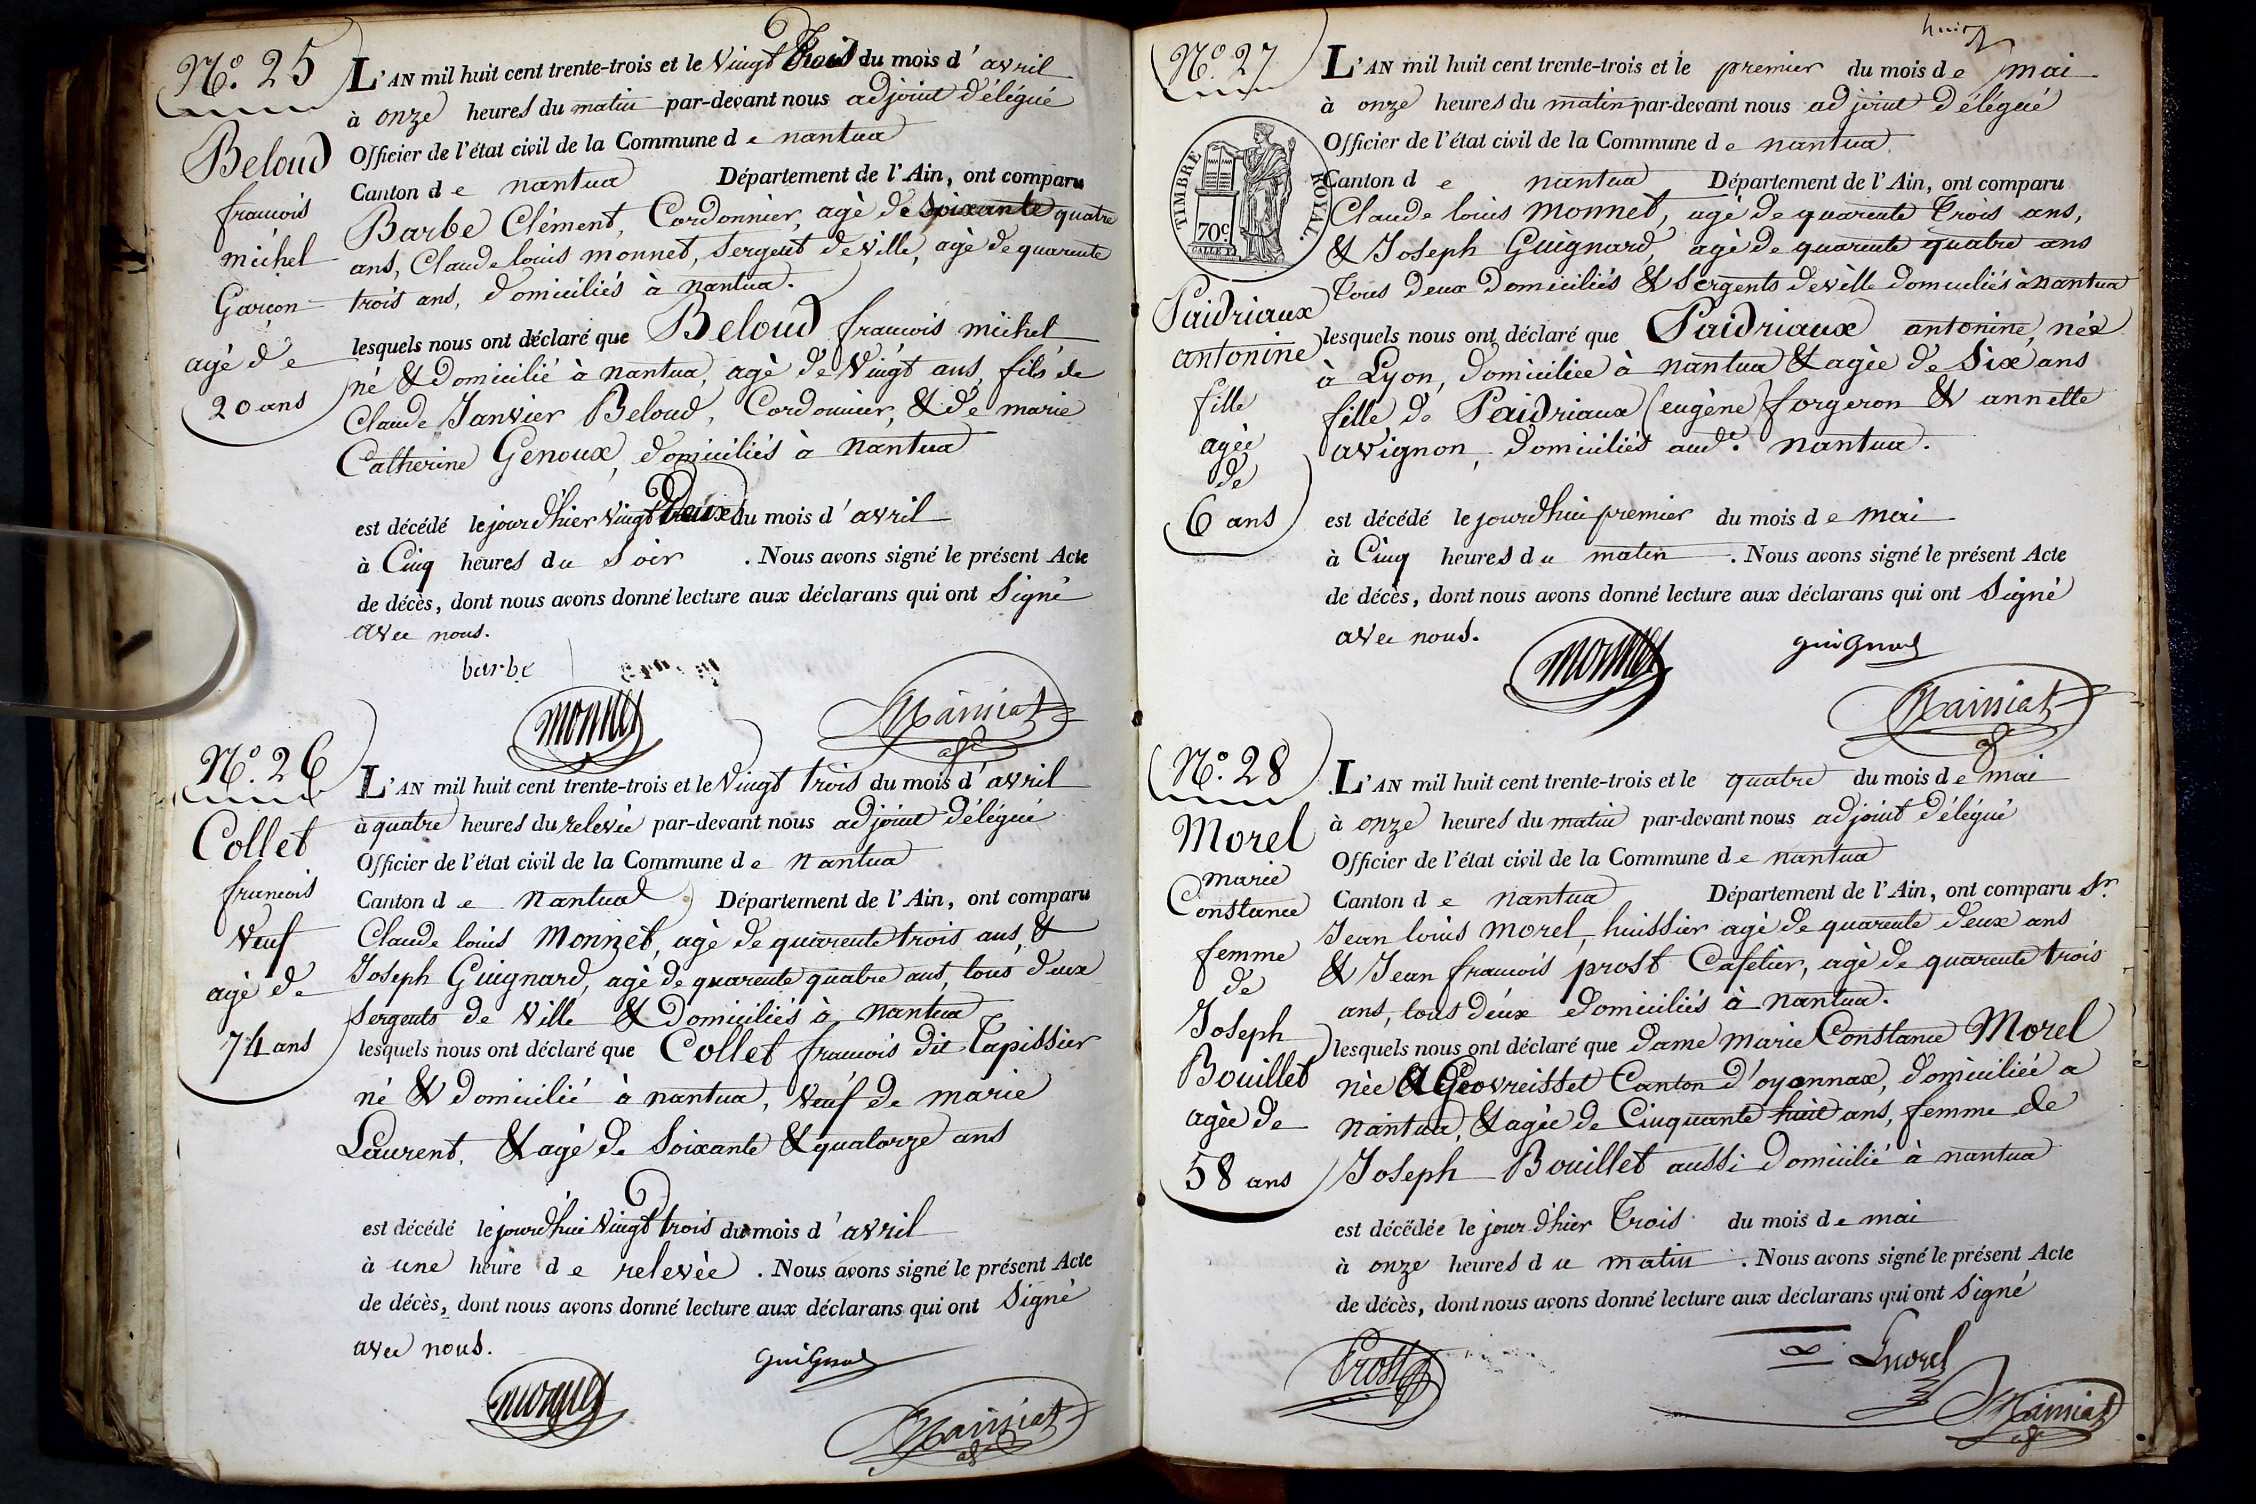 N.° 25
Beloud
francois
michel
Garçon
agé de
20 ans
L'AN mil huit cent trente-trois et le Vingt trois du mois d'avril
à onze heures du matin par-devant nous adjoint délégué
Officier de l'état civil de la Commune de nantua
Canton de nantua Département de l'Ain, ont comparu
Barbe Clément, Cordonnier, agé de soixante quatre
ans, Claude louis monnet, Sergent de ville, agé de quarente
trois ans, domiciliés à nantua.
lesquels nous ont déclaré que Beloud francois michel
né & domicilié à nantua, agé de Vingt ans, fils de
Claude Janvier Beloud, Cordonnier, & de marie
Catherine Genoux, domiciliés à Nantua
est décédé le jour d'hier Vingt deux du mois d'avril
à Cinq heures du Soir . Nous avons signé le présent Acte
de décès, dont nous avons donné lecture aux déclarans qui ont Signé
avec nous.
barbe
monnet
N.° 26
Collet
francois
Veuf
agé de
74 ans
L'AN mil huit cent trente-trois et le Vingt trois du mois d'avril
à quatre heures du relevée par-devant nous adjoint délégué
Officier de l'état civil de la Commune de Nantua
Canton de Nantua Département de l'Ain, ont comparu
Claude louis Monnet, agé de quarente trois ans, &
Joseph Guignard, agé de quarente quatre ans, tous deux
Sergents de Ville & domiciliés à Nantua
lesquels nous ont déclaré que Collet francois dit Tapissier
né & domicilié à nantua, Veuf de marie
Laurent, & agé de Soixante & quatorze ans
est décédé le jourd'hui Vingt trois du mois d'avril
à une heure de relevée . Nous avons signé le présent Acte
de décès, dont nous avons donné lecture aux déclarans qui ont Signé
avec nous.
monnet
guignard
huit
N.° 27
TIMBRE ROYAL.
70c
Paidriaux
antonine
fille
agée
de
6 ans
L'AN mil huit cent trente-trois et le premier du mois de mai
à onze heures du matin par-devant nous adjoint délégué
Officier de l'état civil de la Commune de nantua
Canton de nantua Département de l'Ain, ont comparu
Claude louis monnet, agé de quarente trois ans,
& Joseph Guignard, agé de quarente quatre ans
tous deux domiciliés & Sergents de ville domiciliés à nantua
lesquels nous ont déclaré que Paidriaux antonine, née
à Lyon, domiciliée à nantua & agée de Six ans
fille de Paidriaux (eugène) forgeron & annette
avignon, domiciliés aud.t nantua.
est décédé le jourd'hui premier du mois de mai
à Cinq heures du matin . Nous avons signé le présent Acte
de décès, dont nous avons donné lecture aux déclarans qui ont Signé
avec nous.
monnet
guignard
N.° 28
Morel
marie
Constance
femme
de
Joseph
Bouillet
agée de
58 ans
L'AN mil huit cent trente-trois et le quatre du mois de mai
à onze heures du matin par-devant nous adjoint délégué
Officier de l'état civil de la Commune de nantua
Canton de nantua Département de l'Ain, ont comparu Sr.
Jean louis morel, huissier agé de quarente deux ans
& Jean francois prost Cafetier, agé de quarente trois
ans, tous deux domiciliés à nantua.
lesquels nous ont déclaré que dame marie Constance Morel
née A Geovreisset Canton d'oyonnax, domiciliée a
nantua, & agée de Cinquante huit ans, femme de
Joseph Bouillet aussi domicilié à nantua
est décédée le jour d'hier trois du mois de mai
à onze heures du matin . Nous avons signé le présent Acte
de décès, dont nous avons donné lecture aux déclarans qui ont Signé
Prost
morel